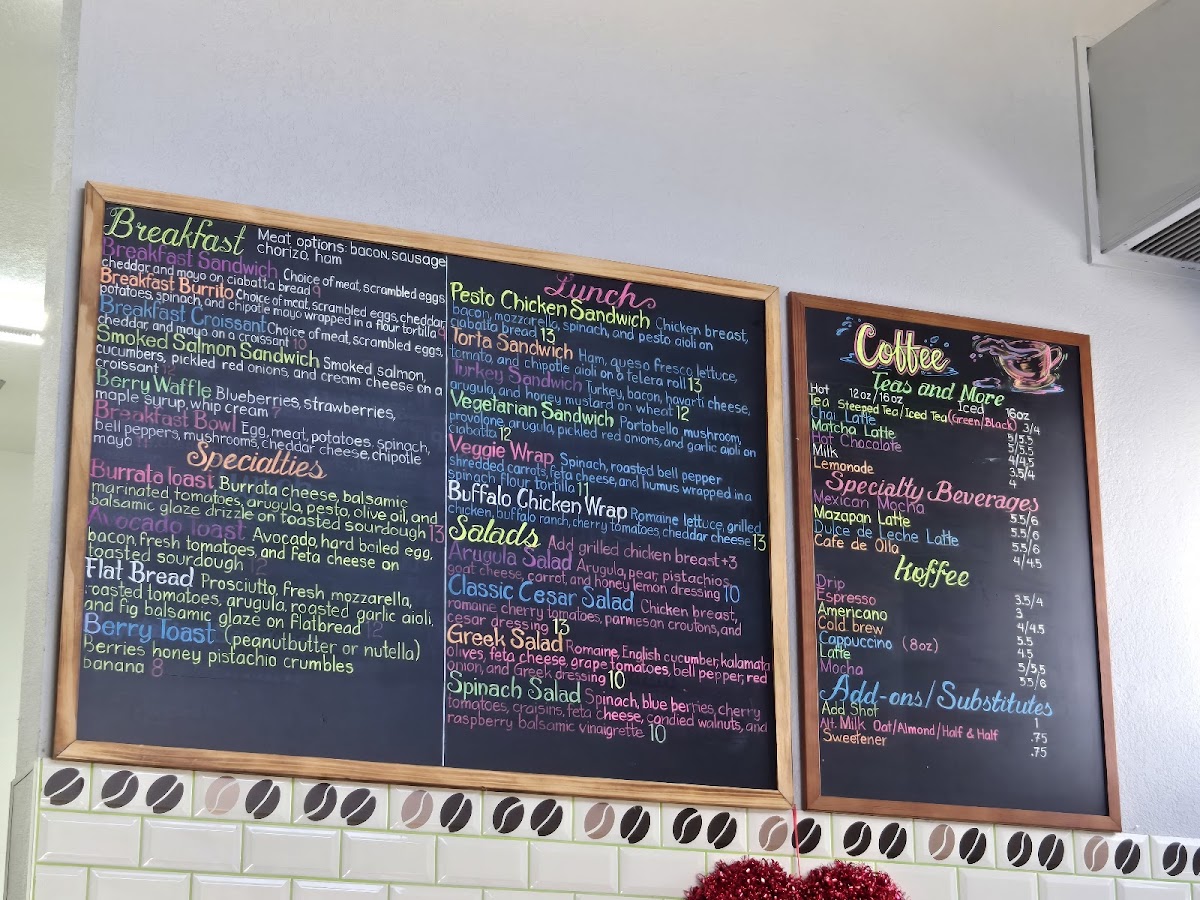 Breakfast Meat options: bacon, sausage
chorizo, ham
Breakfast Sandwich Choice of meat, scrambled eggs
cheddar and mayo on ciabatta bread 9
Breakfast Burrito Choice of meat, scrambled eggs, cheddar,
potatoes, spinach, and chipotle mayo wrapped in a flour tortilla 9
Breakfast Croissant Choice of meat, scrambled eggs,
cheddar and mayo on a croissant 10
Smoked Salmon Sandwich Smoked salmon,
cucumbers, pickled red onions, and cream cheese on a
croissant 12
Berry Waffle Blueberries, strawberries,
maple syrup, whip cream 7
Breakfast Bowl Egg, meat, potatoes, spinach,
bell peppers, mushrooms, cheddar cheese, chipotle
mayo
Specialties
Burrata Toast Burrata cheese, balsamic
marinated tomatoes, arugula, pesto, olive oil, and
balsamic glaze drizzle on toasted sourdough 13
Avocado Toast Avocado, hard boiled egg,
bacon, fresh tomatoes, and Feta cheese on
toasted sourdough 12
Flat Bread Prosciutto, fresh mozzarella,
roasted tomatoes, arugula, roasted garlic aioli,
and fig balsamic glaze on flatbread 12
Berry Toast (peanutbutter or nutella)
Berries honey pistachio crumbles
banana 8
Lunch
Pesto Chicken Sandwich Chicken breast,
bacon, mozzarella, spinach, and pesto aioli on
ciabatta bread 13
Torta Sandwich Ham, queso fresco, lettuce,
tomato, and chipotle aioli on a telera roll 13
Turkey Sandwich Turkey, bacon, havarti cheese,
arugula, and honey mustard on wheat 12
Vegetarian Sandwich Portobello mushroom,
provolone, arugula, pickled red onions, and garlic aioli on
ciabatta 12
Veggie Wrap Spinach, roasted bell pepper
shredded carrots, feta cheese, and humus wrapped in a
spinach flour tortilla 11
Buffalo Chicken Wrap Romaine lettuce, grilled
chicken, buffalo ranch, cherry tomatoes, cheddar cheese 13
Salads Add grilled chicken breast +3
Arugula Salad Arugula, pear, pistachios,
goat cheese, carrot, and honey lemon dressing 10
Classic Cesar Salad Chicken breast,
romaine cherry tomatoes, parmesan croutons, and
cesar dressing 13
Greek Salad Romaine, English cucumber, kalamata
olives, feta cheese, grape tomatoes, bell pepper, red
onion, and Greek dressing 10
Spinach Salad Spinach, blue berries, cherry
tomatoes, craisins, feta cheese, candied walnuts, and
raspberry balsamic vinaigrette 10
Coffee
Teas and More
Hot 12oz/16oz Iced 16oz
Tea Steeped Tea/Iced Tea (Green/Black) 3/4
Chai Latte 5/5.5
Matcha Latte 5/5.5
Hot Chocolate 4/4.5
Milk 3.5/4
Lemonade 4
Specialty Beverages
Mexican Mocha 5.5/6
Mazapan Latte 5.5/6
Dulce de Leche Latte 5.5/6
Cafe de Olla 4/4.5
Koffee
Drip 3.5/4
Espresso 3
Americano 4/4.5
Cold brew 5.5
Cappuccino (8oz) 4.5
Latte 5/5.5
Mocha 5.5/6
Add-ons/Substitutes
Add Shot 1
Alt. Milk Oat/Almond/Half & Half .75
Sweetener .75